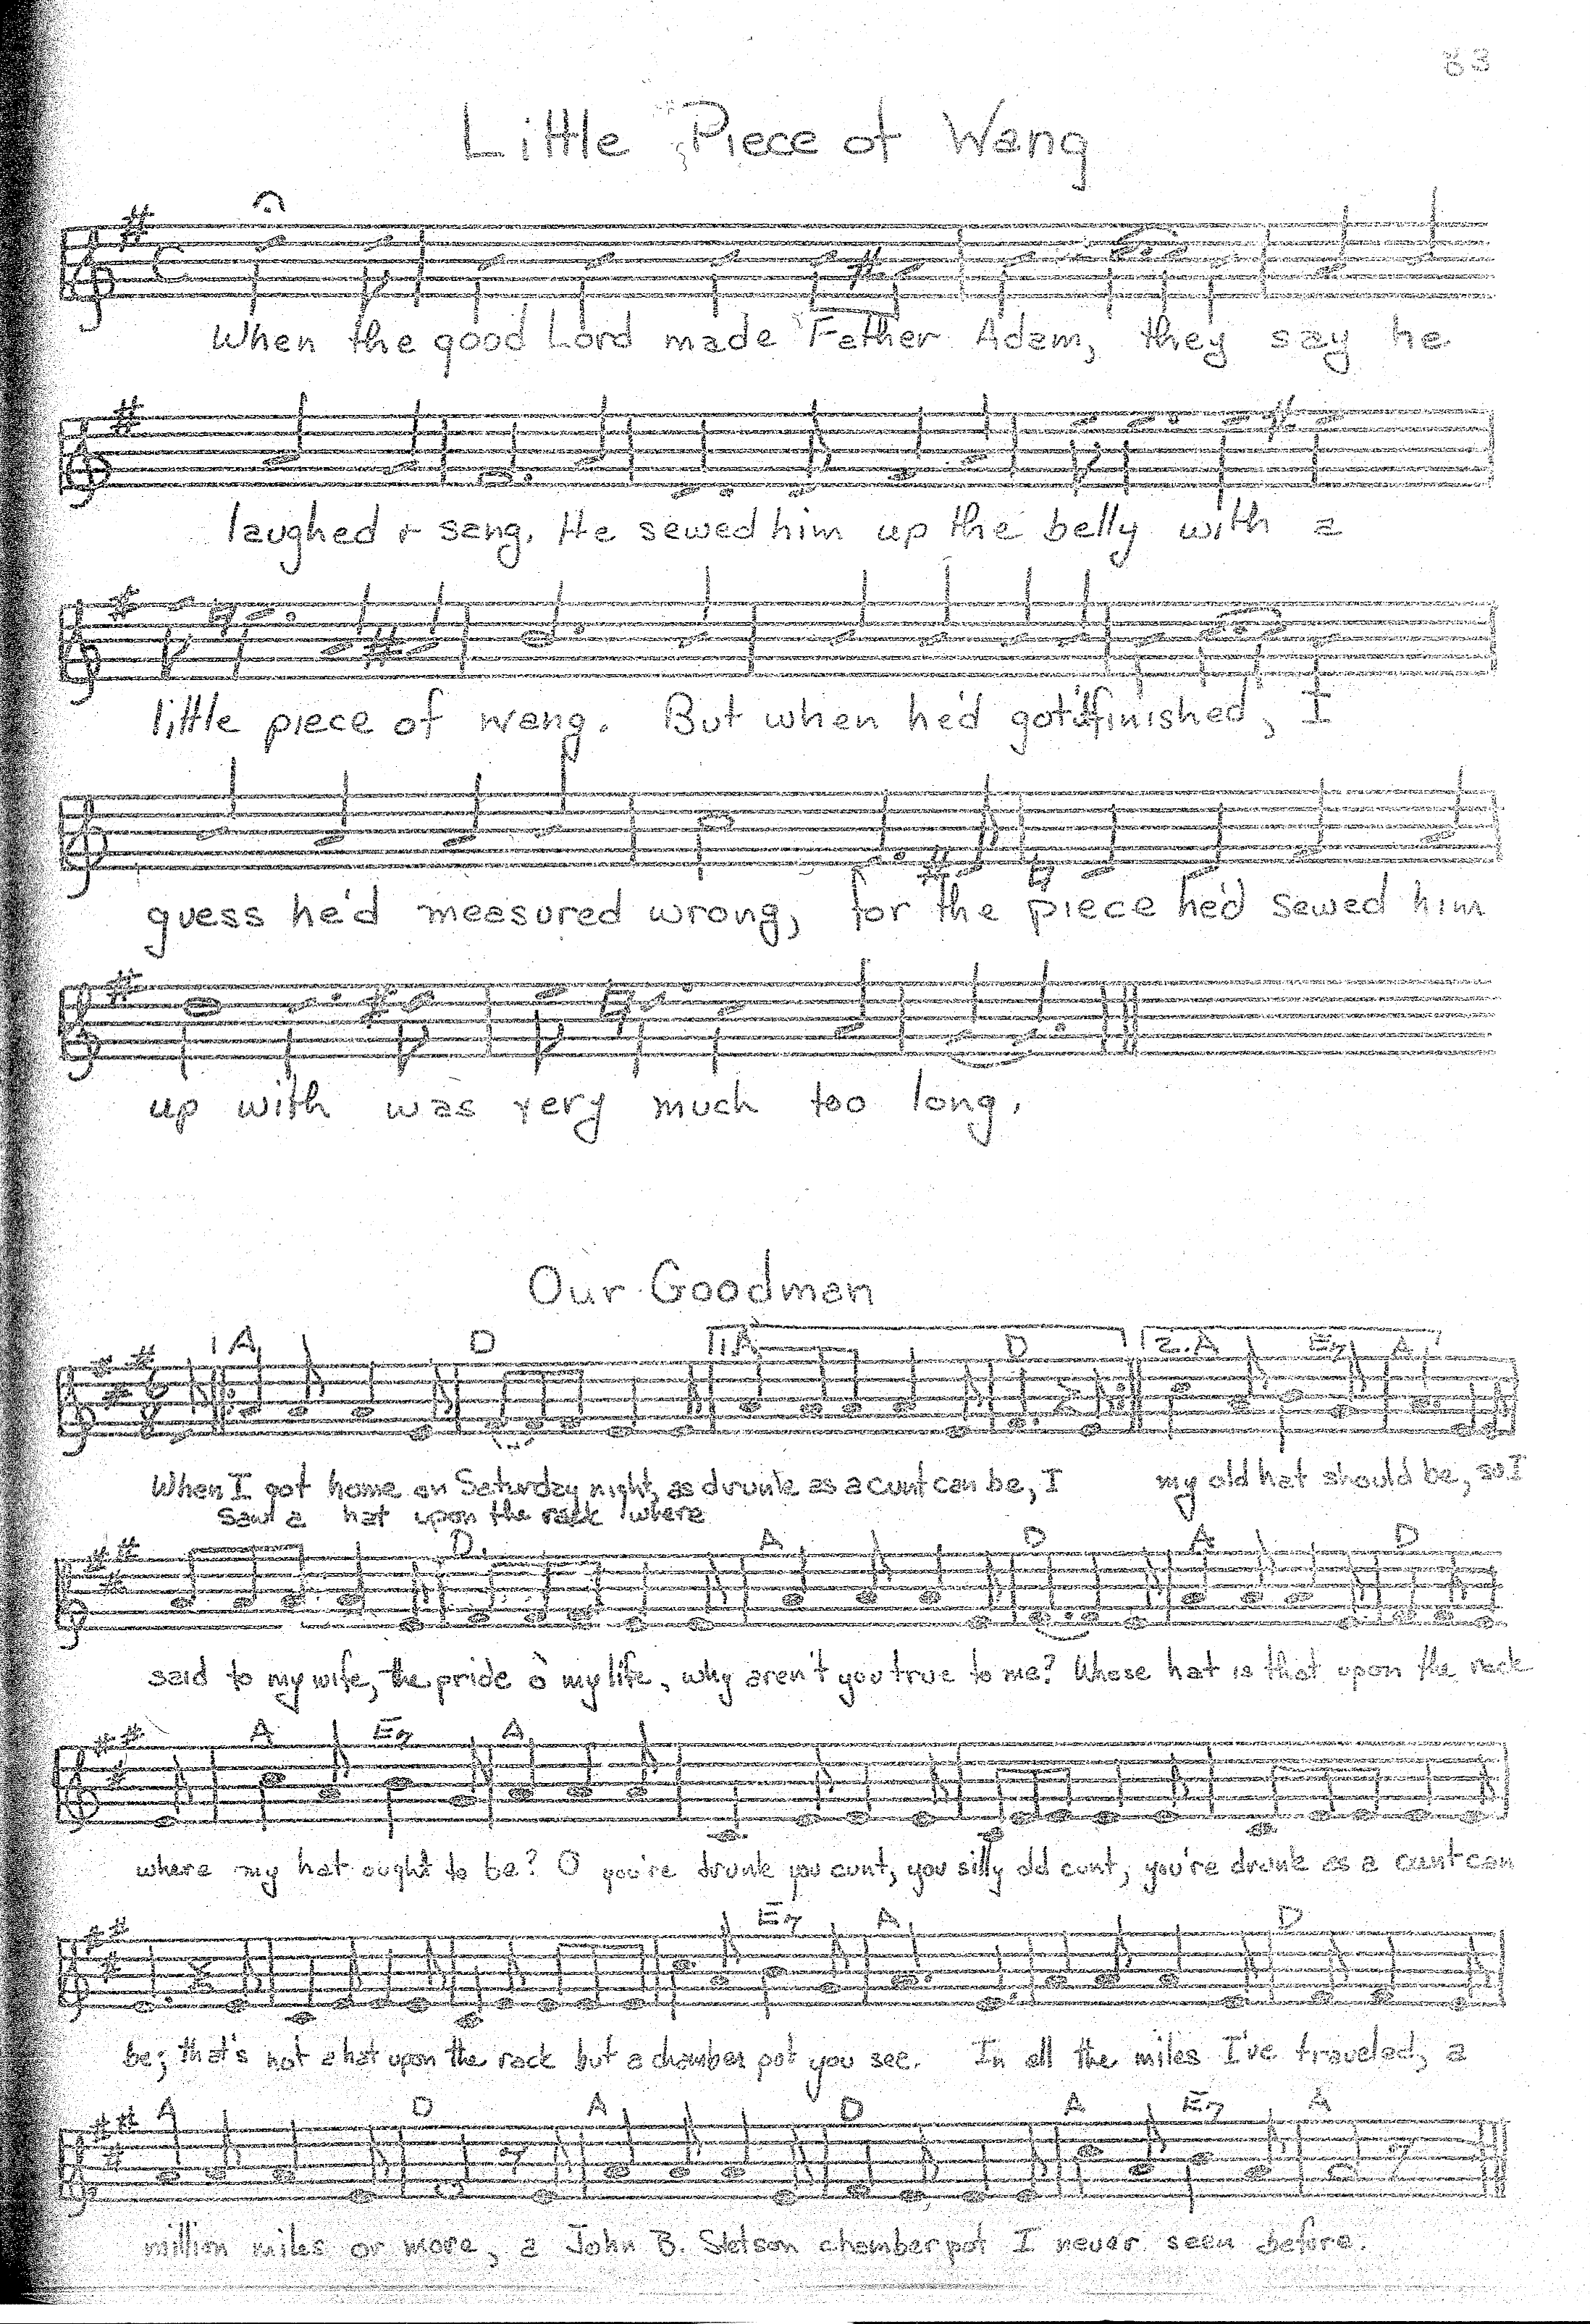 83
Little Piece of Wang
When the good Lord made Father Adam, they say he
laughed + sang. He sewed him up the belly with a
little piece of wang. But when he'd got finished, I
guess he'd measured wrong, for the piece he'd sewed him
up with was very much too long.
Our Goodman
A D 1. A D 2. A E7 A
When I got home on Saturday night, as drunk as a cunt can be, I my old hat should be, so I
saw a hat upon the rack where
D A D A D
said to my wife, the pride o my life, why aren't you true to me? Whose hat is that upon the rack
A E7 A
where my hat ought to be? O you're drunk you cunt, you silly old cunt, you're drunk as a cunt can
E7 A D
be; that's not a hat upon the rack but a chamber pot you see. In all the miles I've traveled, a
A D A D A E7 A
million miles or more, a John B. Stetson chamber pot I never seen before.